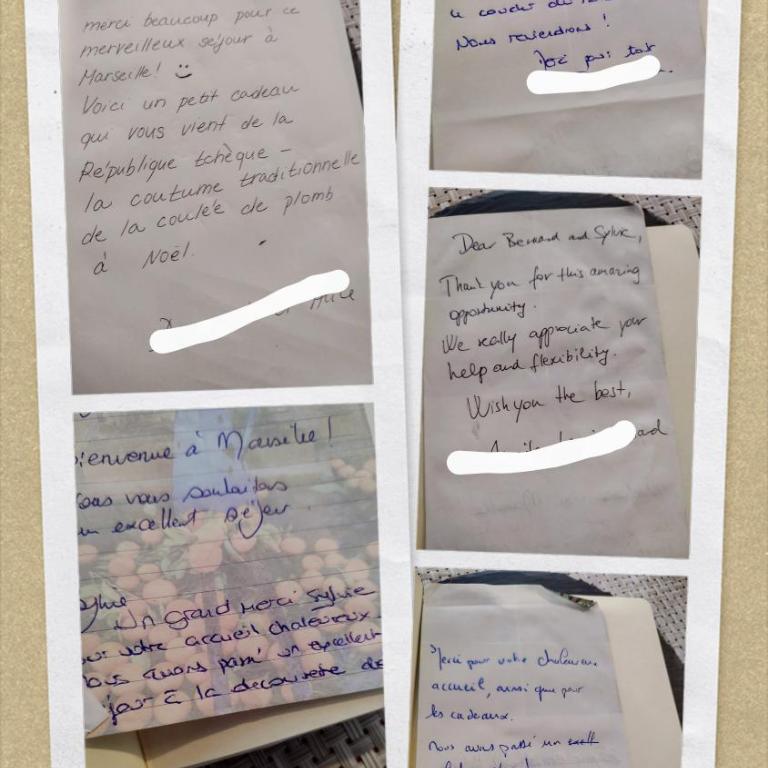 merci beaucoup pour ce
merveilleux séjour à
Marseille! :)
Voici un petit cadeau
qui vous vient de la
République tchèque –
la coutume traditionnelle
de la coulée de plomb
à Noël.
ienvenue à Marseille!
ous vous souhaitons
un excellent séjour.
Sylvie
Un Grand Merci Sylvie
our votre accueil chaleureux.
ous avons passé un excellent
jour à la découverte de
le coucher du
Nous reviendrons!
pour tout
Dear Bernard and Sylvie,
Thank you for this amazing
opportunity.
We really appreciate your
help and flexibility.
Wish you the best,
Merci pour votre chaleureux
accueil, ainsi que pour
les cadeaux.
Nous avons passé un